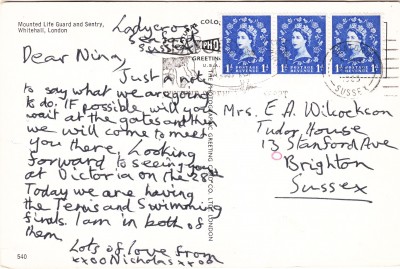 Mounted Life Guard and Sentry,
Whitehall, London
Ladycross
Seaford
Sussex
Dear Nina,
Just a note
to say what we are going
to do. IF possible will you
wait at the gates and then
we will come to meet
you there. Looking
forward to seeing you
at Victoria on the 28th
Today we are having
the Tennis and swimming
finals. I am in both of
them.
Lots of love from
xxoo Nicholas xxoo
540
COLO
GREETING
U.S.A.
GREETING CARD CO. LTD. LONDON
POSTAGE REVENUE
1D 1D
POSTAGE REVENUE
1D 1D
POSTAGE REVENUE
1D 1D
SUSSEX
Mrs. E A Wilcockson
Tudor House
13 Stanford Ave
Brighton
Sussex